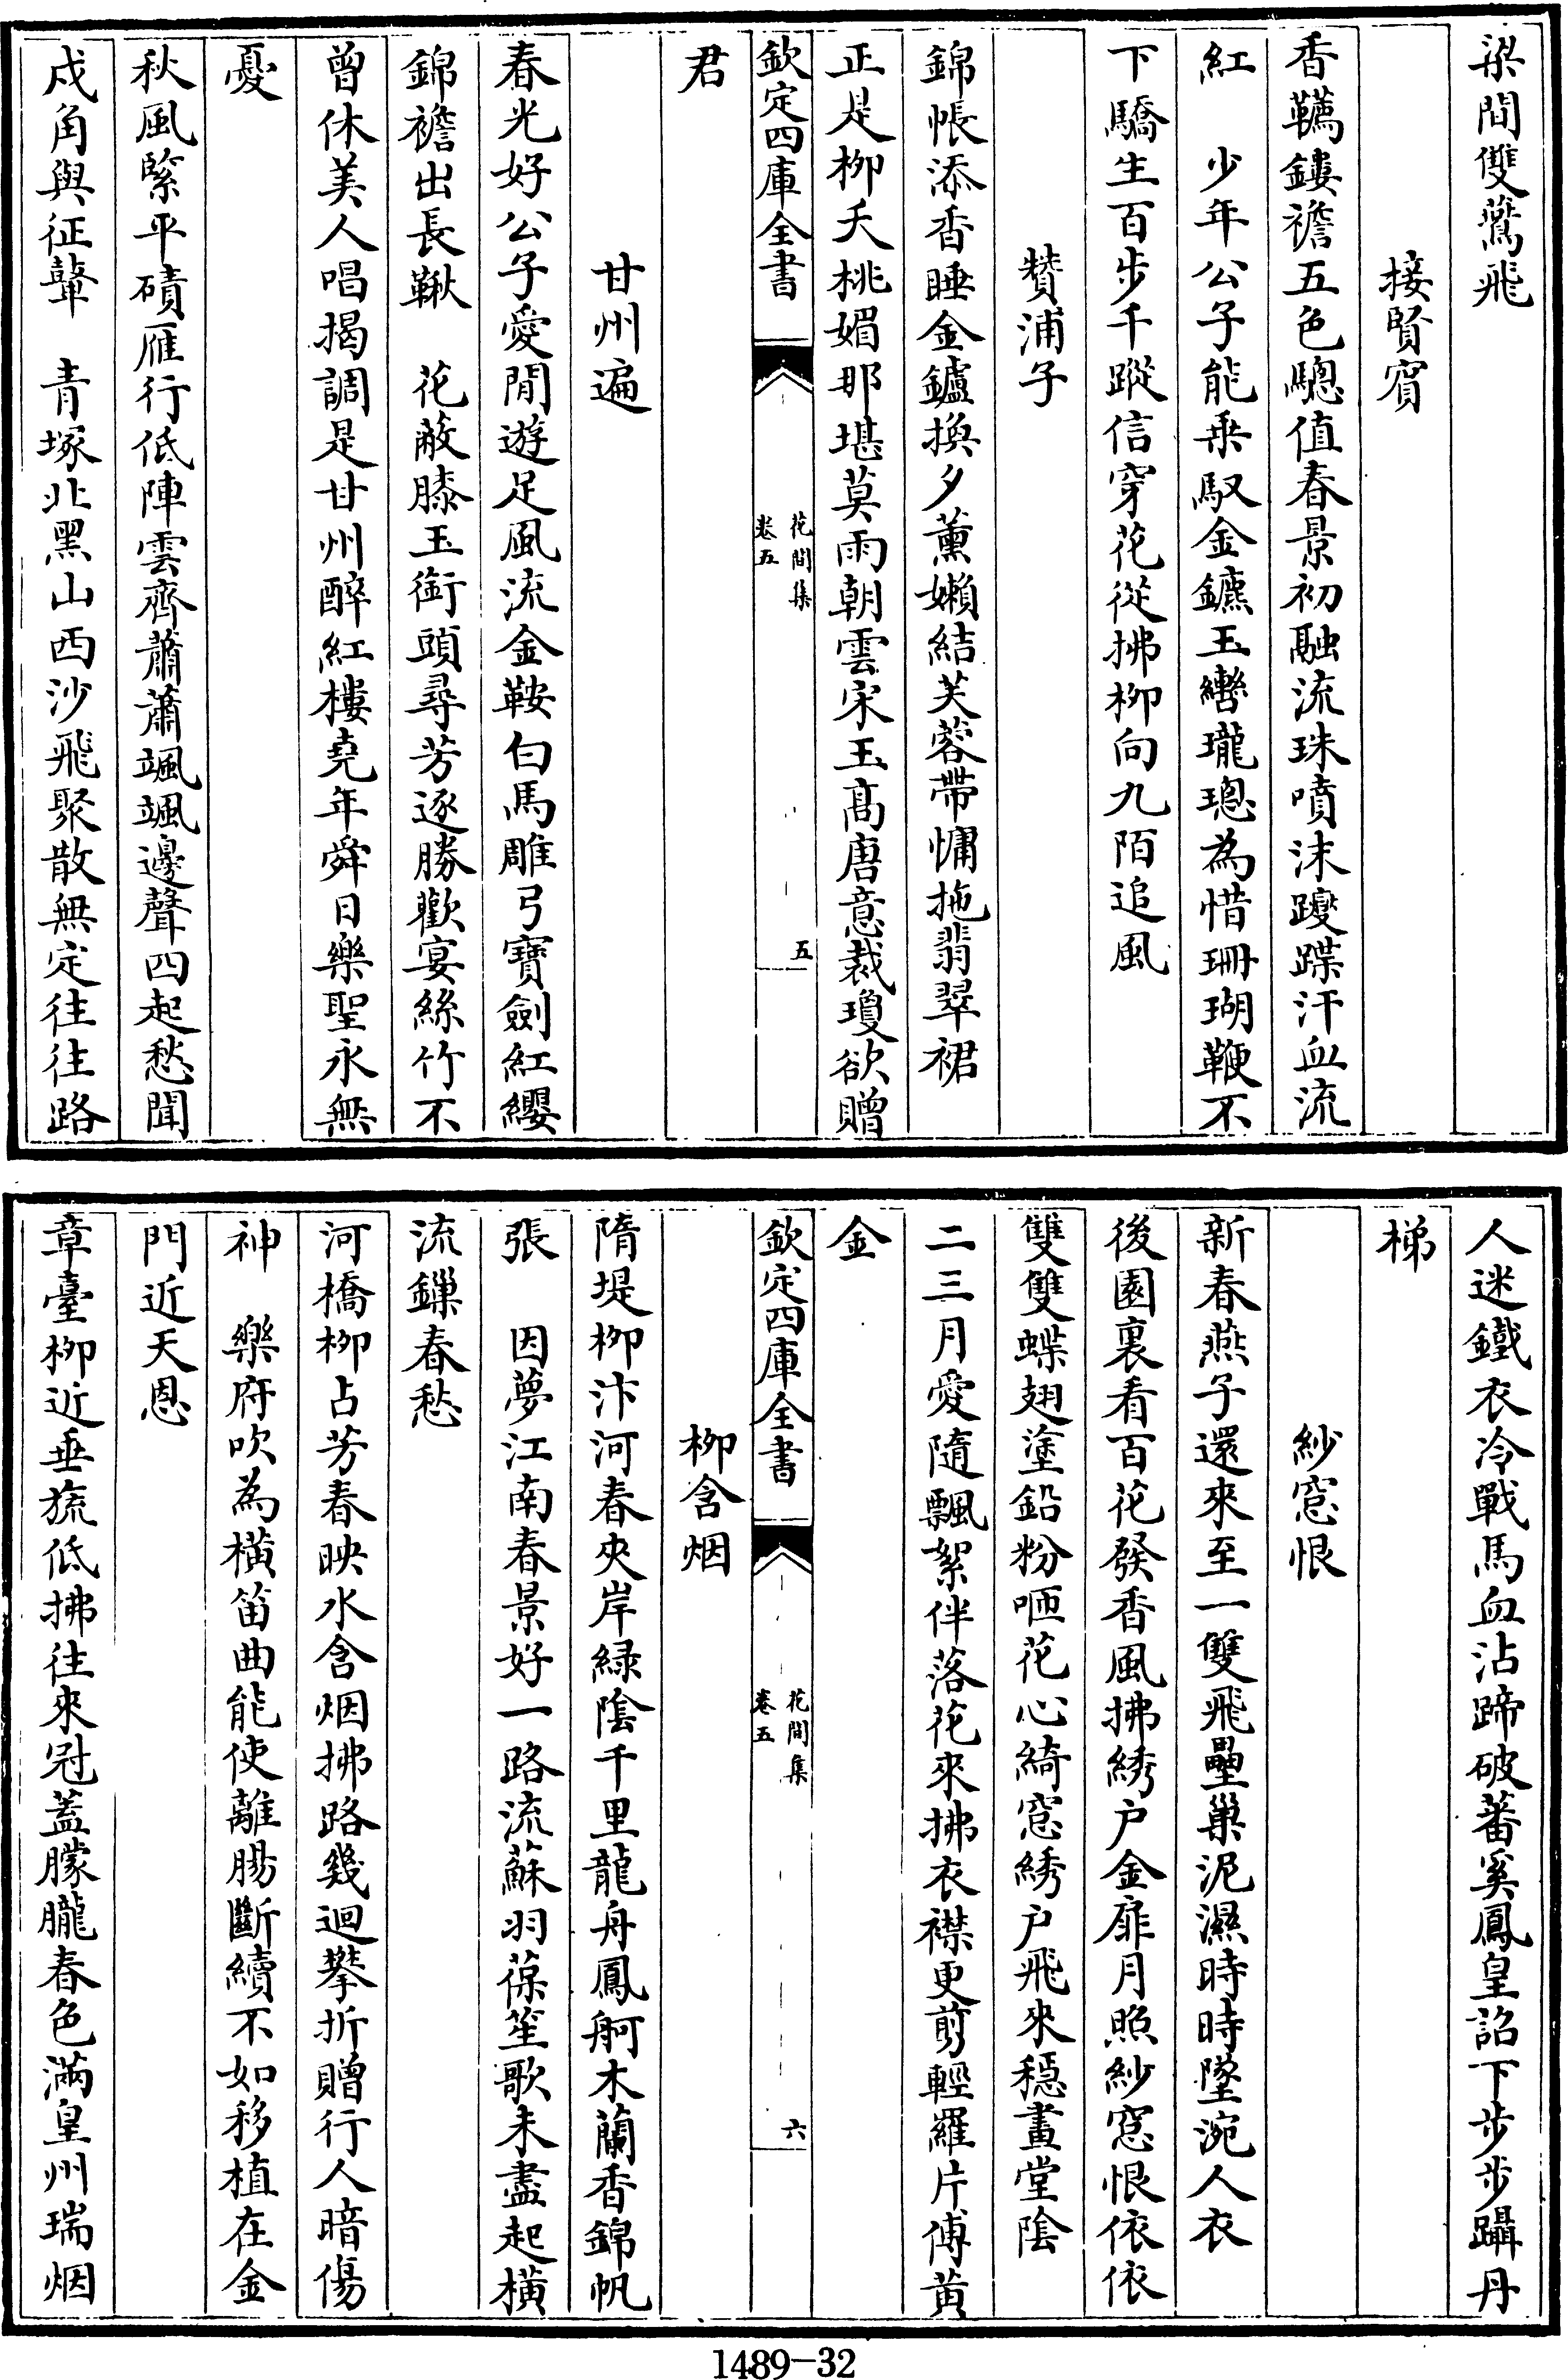 梁間雙鷰飛
接賢賓
香韉鏤襜五色驄值春景初融流珠噴沫躞蹀汗血流
紅　少年公子能乗馭金鑣玉轡瓏璁為惜珊瑚鞭不
下驕生百步千蹤信穿花從拂柳向九陌追風
賛浦子
錦帳添香睡金鑪換夕薫嬾結芙蓉帶慵拖翡翠裙
正是柳夭桃媚那堪莫雨朝雲宋玉髙唐意裁瓊欲贈
欽定四庫全書
花間集
卷五
五
君
甘州遍
春光好公子愛閒遊足風流金鞍白馬雕弓寳劍紅纓
錦襜出長鞦　花蔽膝玉銜頭尋芳逐勝歡宴絲竹不
曾休美人唱揭調是甘州醉紅樓堯年舜日樂聖永無
憂
秋風緊平磧雁行低陣雲齊蕭蕭颯颯邊聲四起愁聞
戍角與征鼙　青塚北黑山西沙飛聚散無定往往路
人迷鐵衣冷戰馬血沾蹄破蕃奚鳳皇詔下步步躡丹
梯
紗窓恨
新春燕子還來至一雙飛壘巢泥濕時時墜涴人衣
後園裏看百花發香風拂綉戶金扉月照紗窓恨依依
雙雙蝶翅塗鉛粉咂花心綺窓綉戶飛來穩畫堂陰
二三月愛隨飄絮伴落花來拂衣襟更剪輕羅片傅黄
金
欽定四庫全書
花間集
卷五
六
柳含烟
隋堤柳汴河春夾岸緑陰千里龍舟鳳舸木蘭香錦帆
張　因夢江南春景好一路流蘇羽葆笙歌未盡起橫
流鏁春愁
河橋柳占芳春映水含烟拂路幾迴攀折贈行人暗傷
神　樂府吹為橫笛曲能使離腸斷續不如移植在金
門近天恩
章臺柳近垂旒低拂往來冠蓋朦朧春色滿皇州瑞烟
1489-32